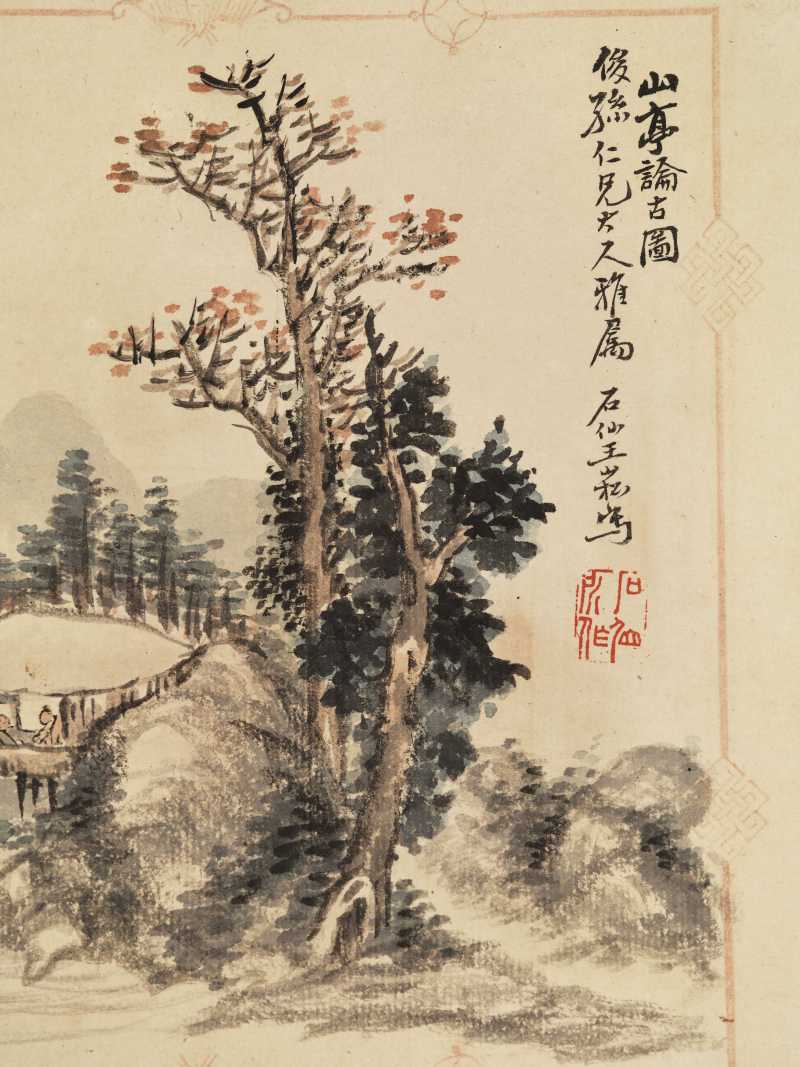 山亭論古圖
俊孫仁兄大人雅属 石仙王崧寫
石仙
所作